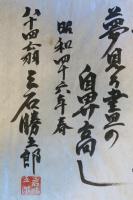 夢見る蚕の
自昇高し
昭和四十六年春
八十四翁 三石勝五郎